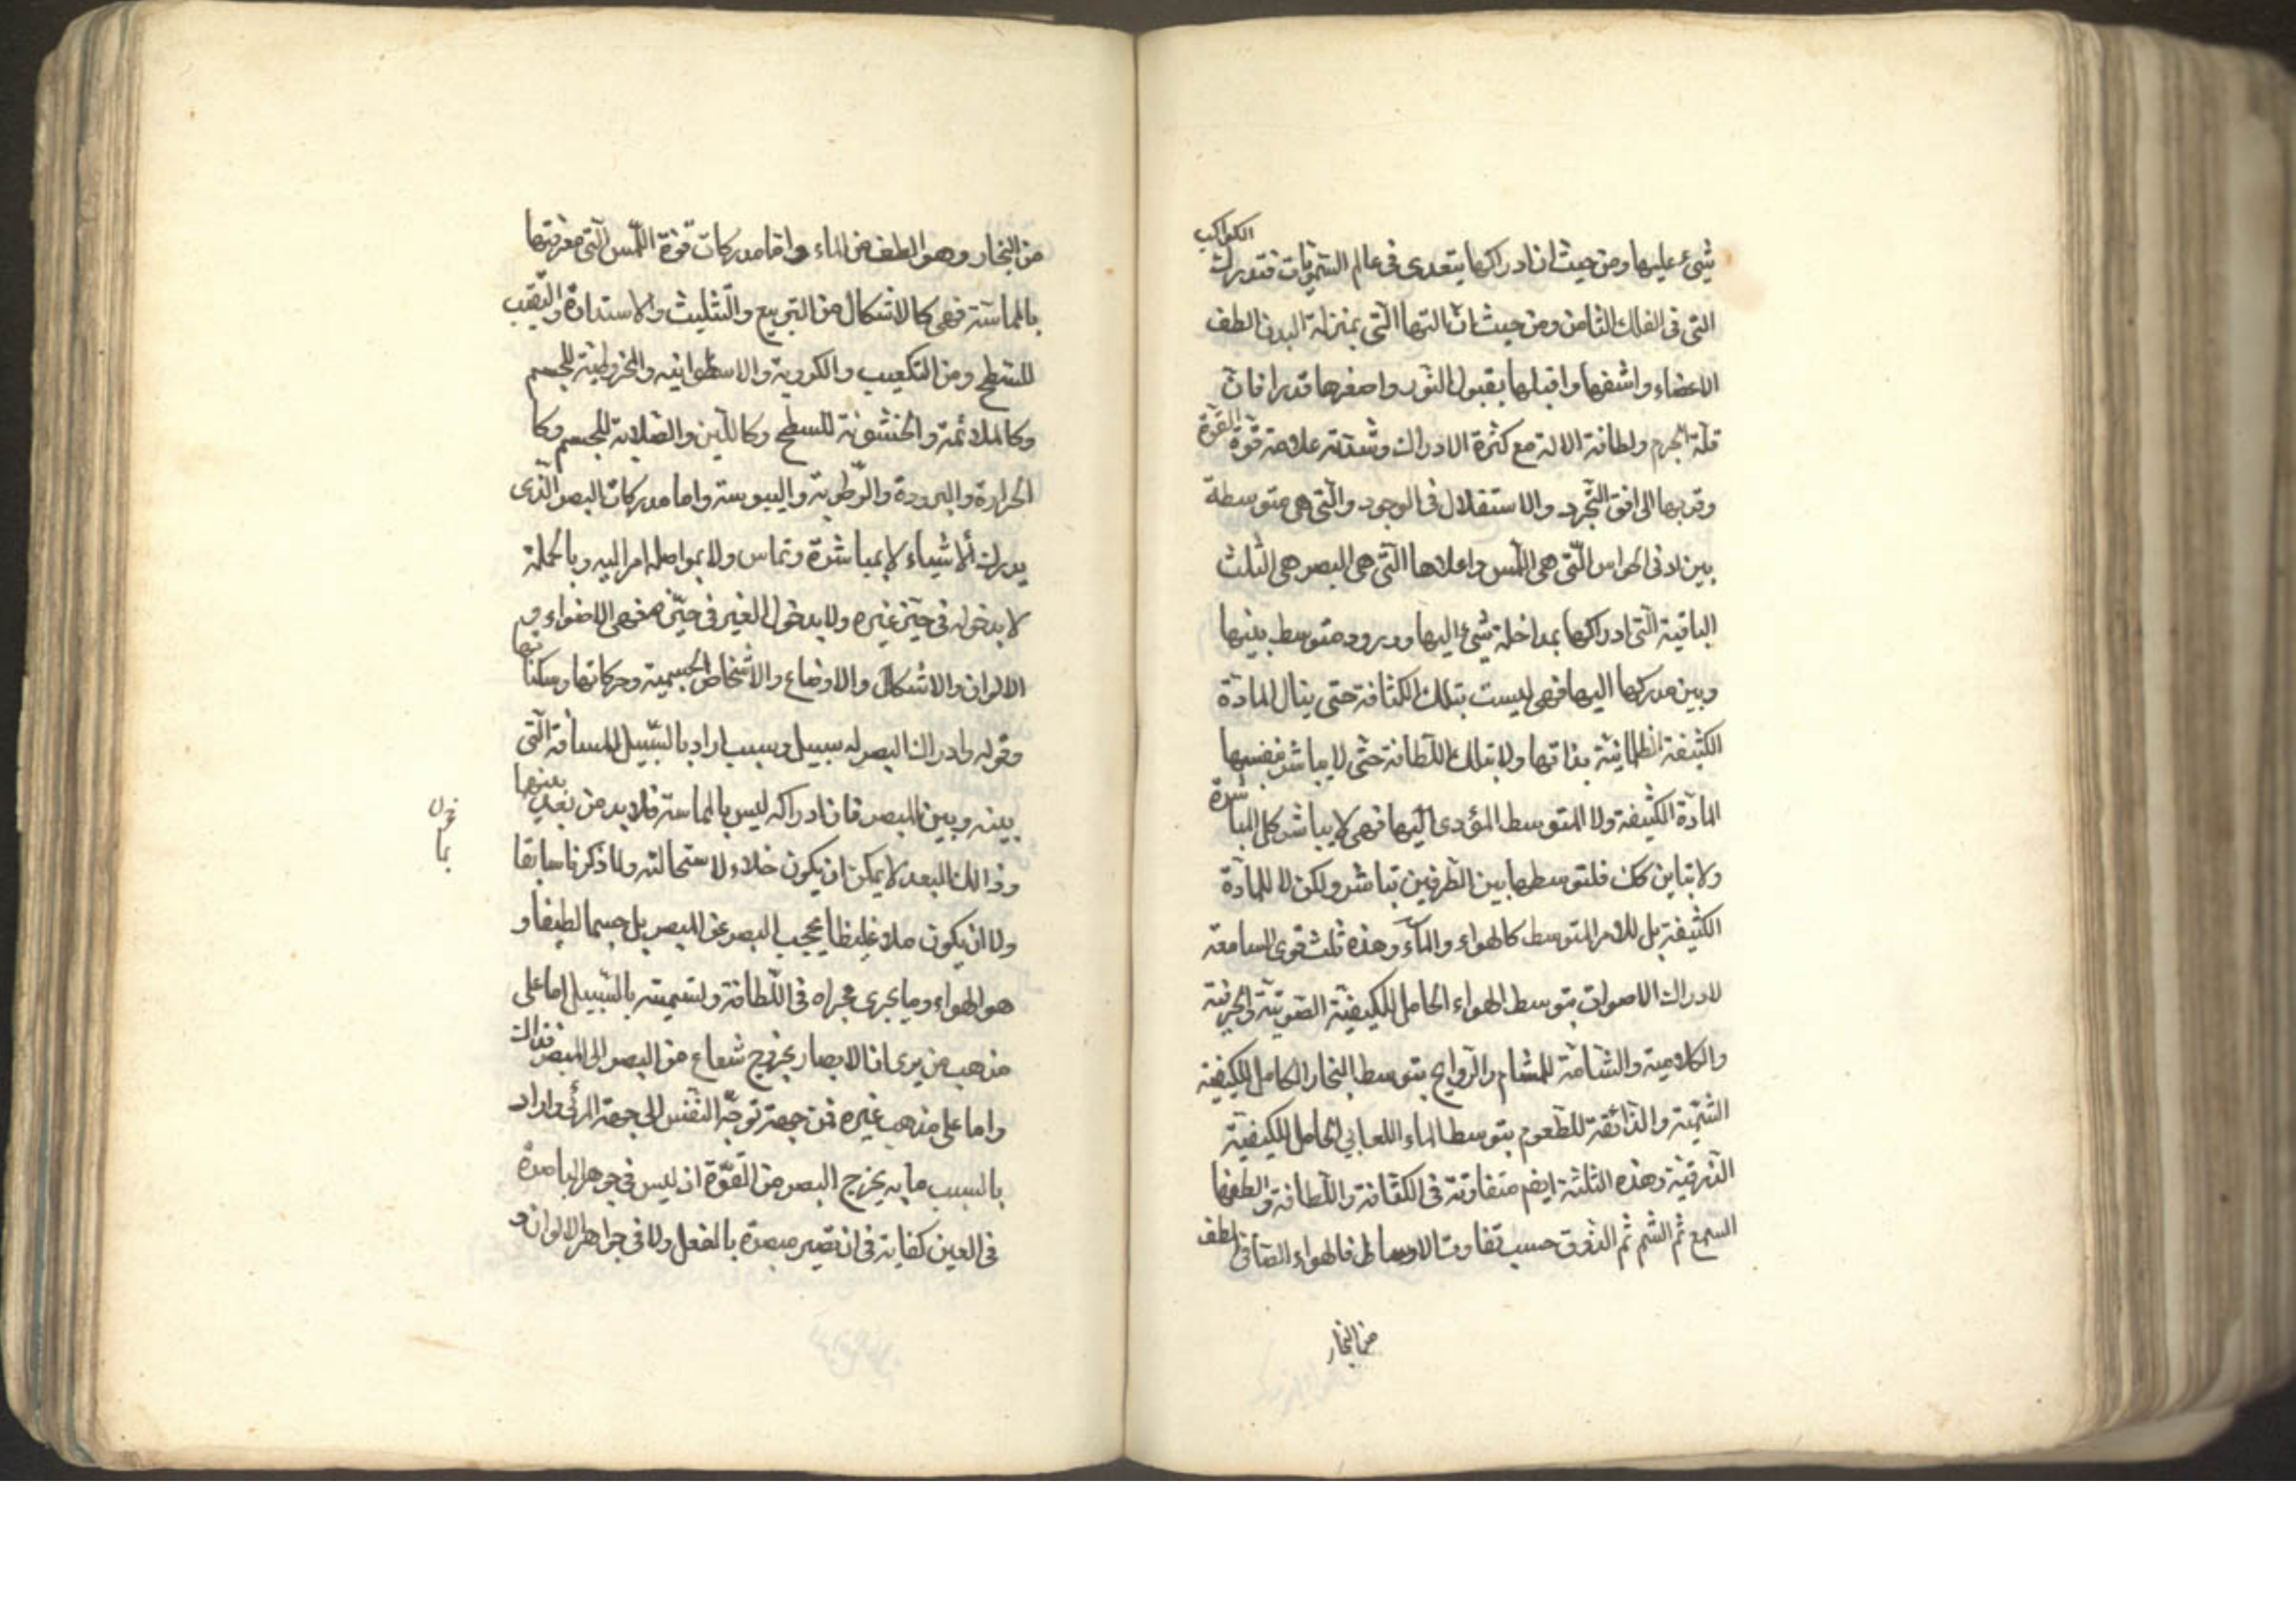 شيء عليها ومن حيث ان ادراكها يتعدى فى عالم السمويات فتدرك الكواكب
التى فى الفلك الثامن ومن حيث ان التها التى بمنزلة البدن الطف
الاعضاء واشفها واقبلها بقبول النور واصغرها قدرا فان
قلة الجرم ولطافة الالة مع كثرة الادراك وشدته علامة قوة القوة
وقربها الى افق التجرد والاستقلال فى الوجود والتى هى متوسطة
بين ادنى الحواس التى هى اللمس واعلاها التى هى البصر هى الثلث
الباقية التى ادراكها بمداخلة شيء اليها وبرود متوسط بينها
وبين مدركها اليها فهى ليست بتلك الكثافة حتى ينال المادة
الكثيفة الظلمانية بذاتها ولا بتلك اللطافة حتى لا يباشر بنفسها
المادة الكثيفة ولا المتوسط المؤدى اليها فهى لا يباشر كل المباشرة
ولا تباين كك فلتوسطها بين الطرفين تباشر ولكن لا للمادة
الكثيفة بل للامر المتوسط كالهواء والماء وهذه ثلث قوى السامعة
لادراك الاصوات بتوسط الهواء الحامل للكيفية الصوتية والحرفية
والكلامية والشامة للمشام والروايح بتوسط البخار الحامل للكيفية
الشمية والذائقة للطعوم بتوسط الماء اللعابي الحامل للكيفية
الذوقية وهذه الثلثة ايضم متفاوتة فى الكثافة واللطافة والطفها
السمع ثم الشم ثم الذوق حسب تفاوت الاوساط فالهواء الصافى الطف
من البخار
من البخار وهو الطف من الماء واما مدركات قوة اللمس التى معرفتها
بالمماسة فهى كالاشكال من التربيع والتثليث والاستدارة والتقبيب
للسطح ومن التكعيب والكروية والاسطوانيه والمخروطية للجسم
وكالملائمة والخشونة للسطح وكاللين والصلابة للجسم وكا
الحرارة والبرودة والرطوبة واليبوسة واما مدركات البصر الذى
يدرك الاشياء لا بمباشرة وتماس ولا بمواصلة امر اليه وبالجملة
لا بدخوله فى حيز غيره ولا بدخول الغير فى حيزه فهى الاضواء و
الالوان والاشكال والاوضاع والاشخاص الجسمية وحركاتها وسكناتها
وقوله وادراك البصر له سبيل وسبب اراد بالسبيل المسافة التى
بينه وبين المبصر فان ادراكه ليس بالمماسة فلابد من بعد بينهما
وذالك البعد لا يمكن ان يكون خلاء لاستحالته ولما ذكرنا سابقا
ولا ان يكون ملاء غليظا يحجب البصر عن المبصر بل جسما لطيفا و
هو الهواء وما يجرى مجراه فى اللطافة وتسميته بالسبيل اما على
مذهب من يرى ان الابصار بخروج شعاع من البصر الى المبصر فذالك
واما على مذهب غيره فمن جهة توجه النفس الى جهة المرئى واراد
بالسبب ما به يخرج البصر من القوة اذ ليس فى جوهر الباصرة
فى العين كفاية فى ان تصير مبصرة بالفعل ولا فى جواهر الالوان و